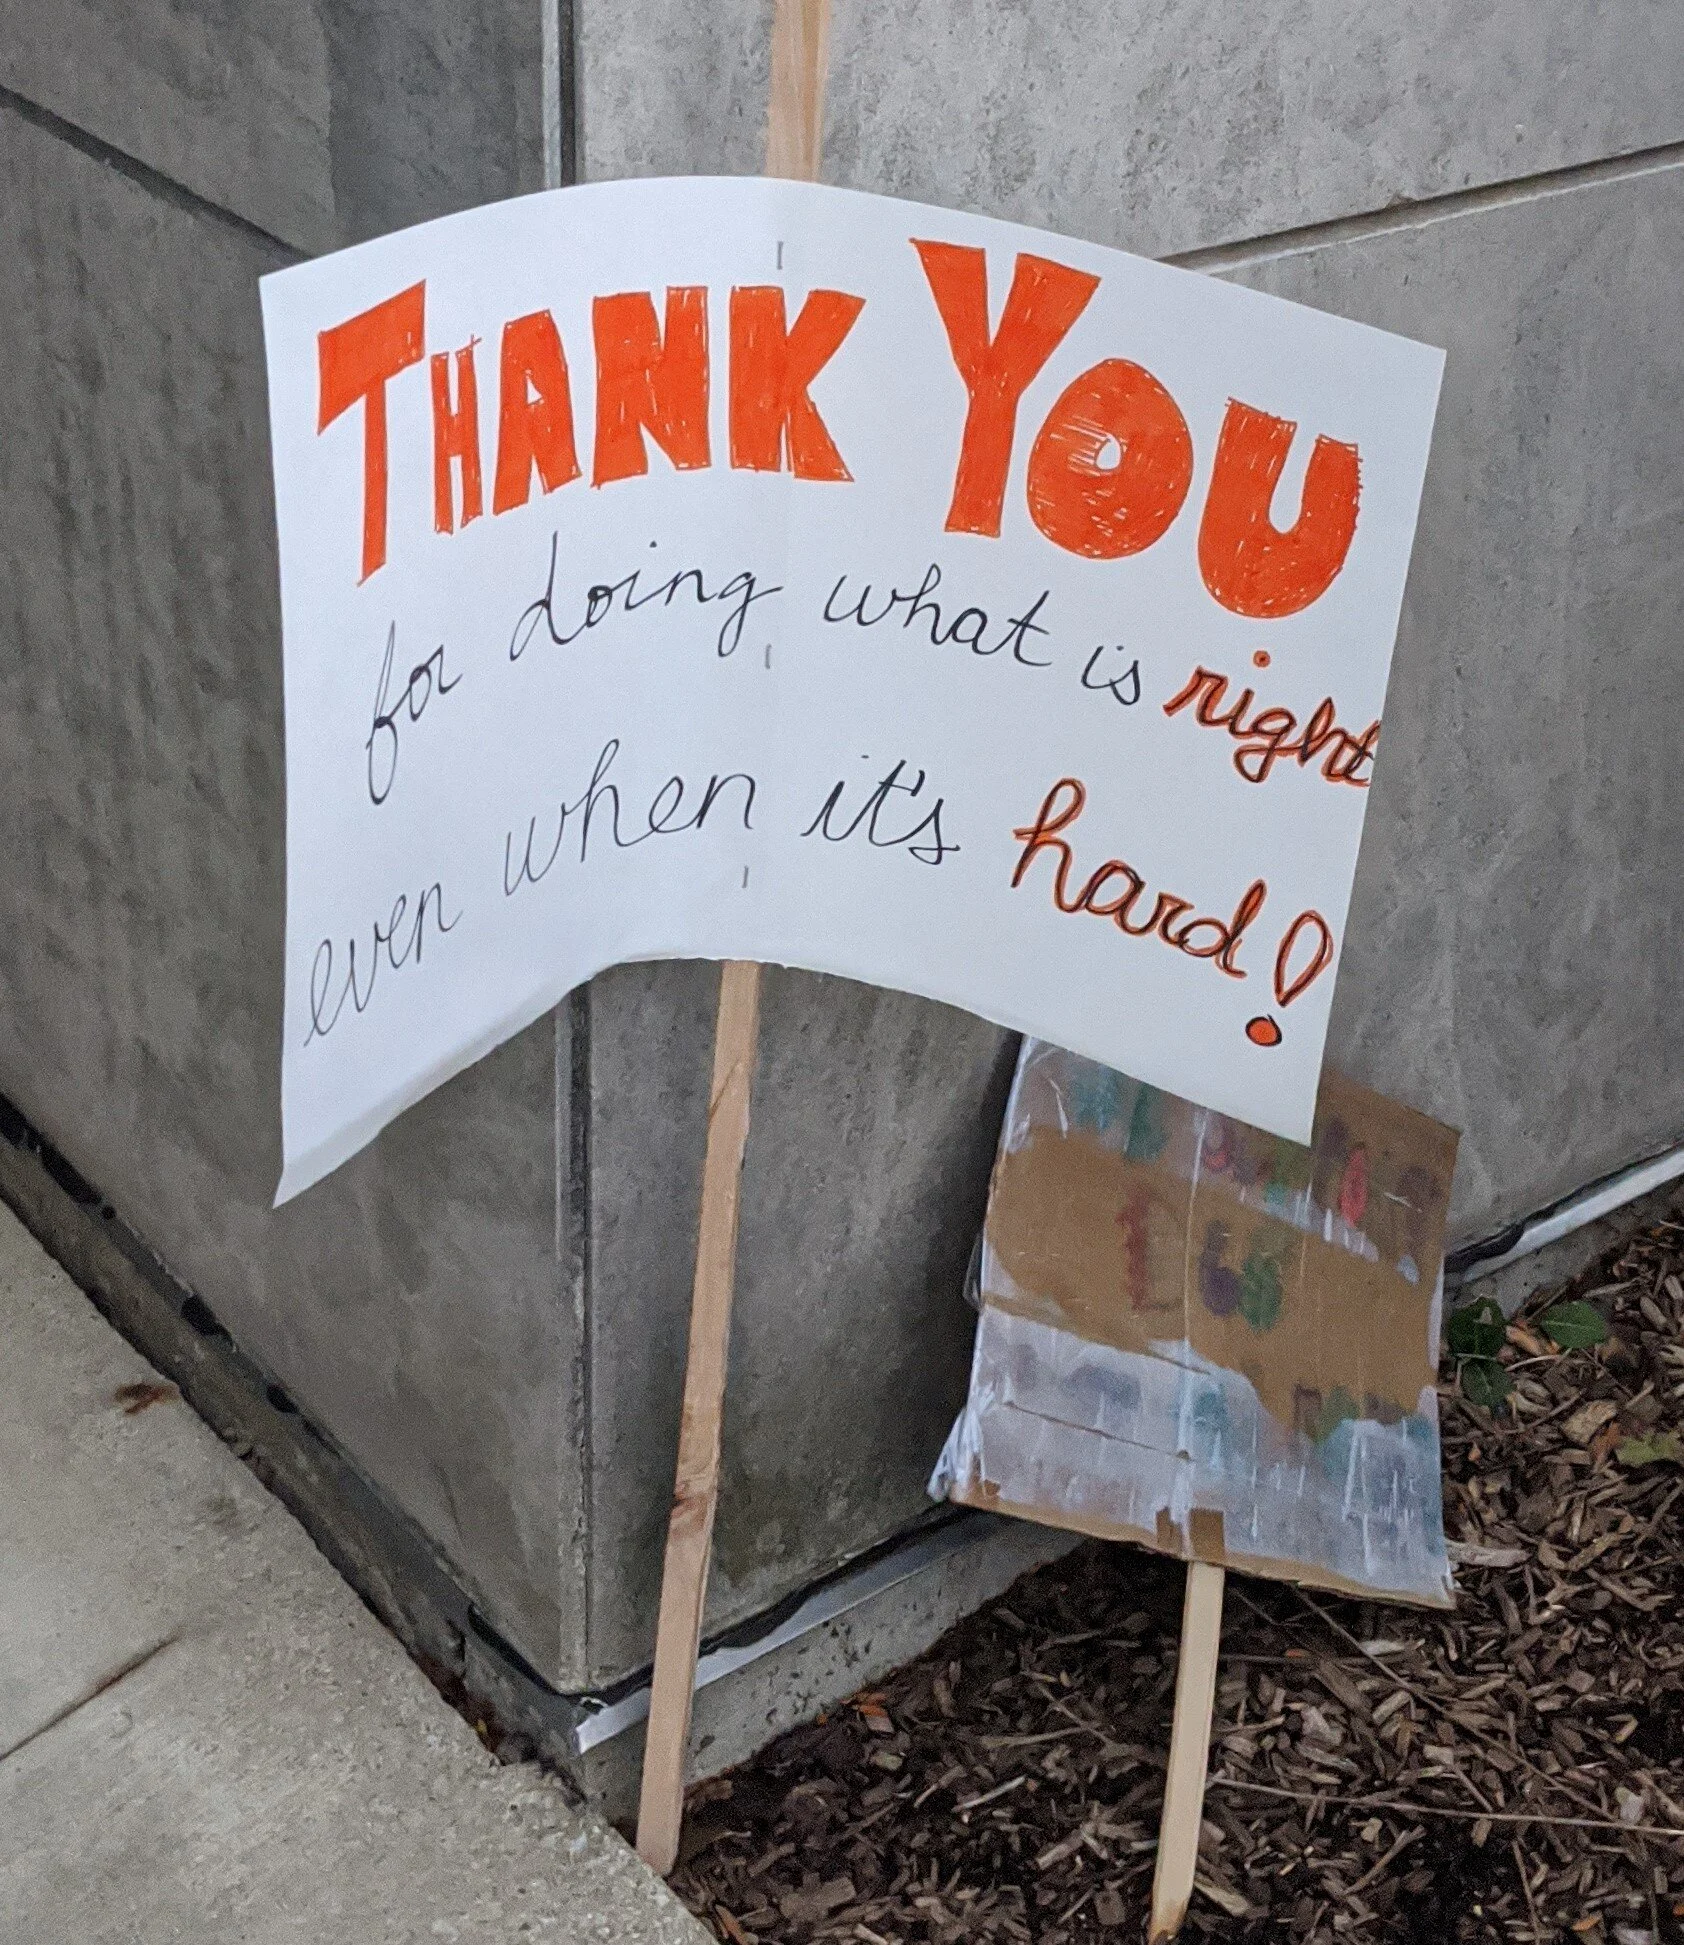 THANK YOU
for doing what is right
even when it's hard!